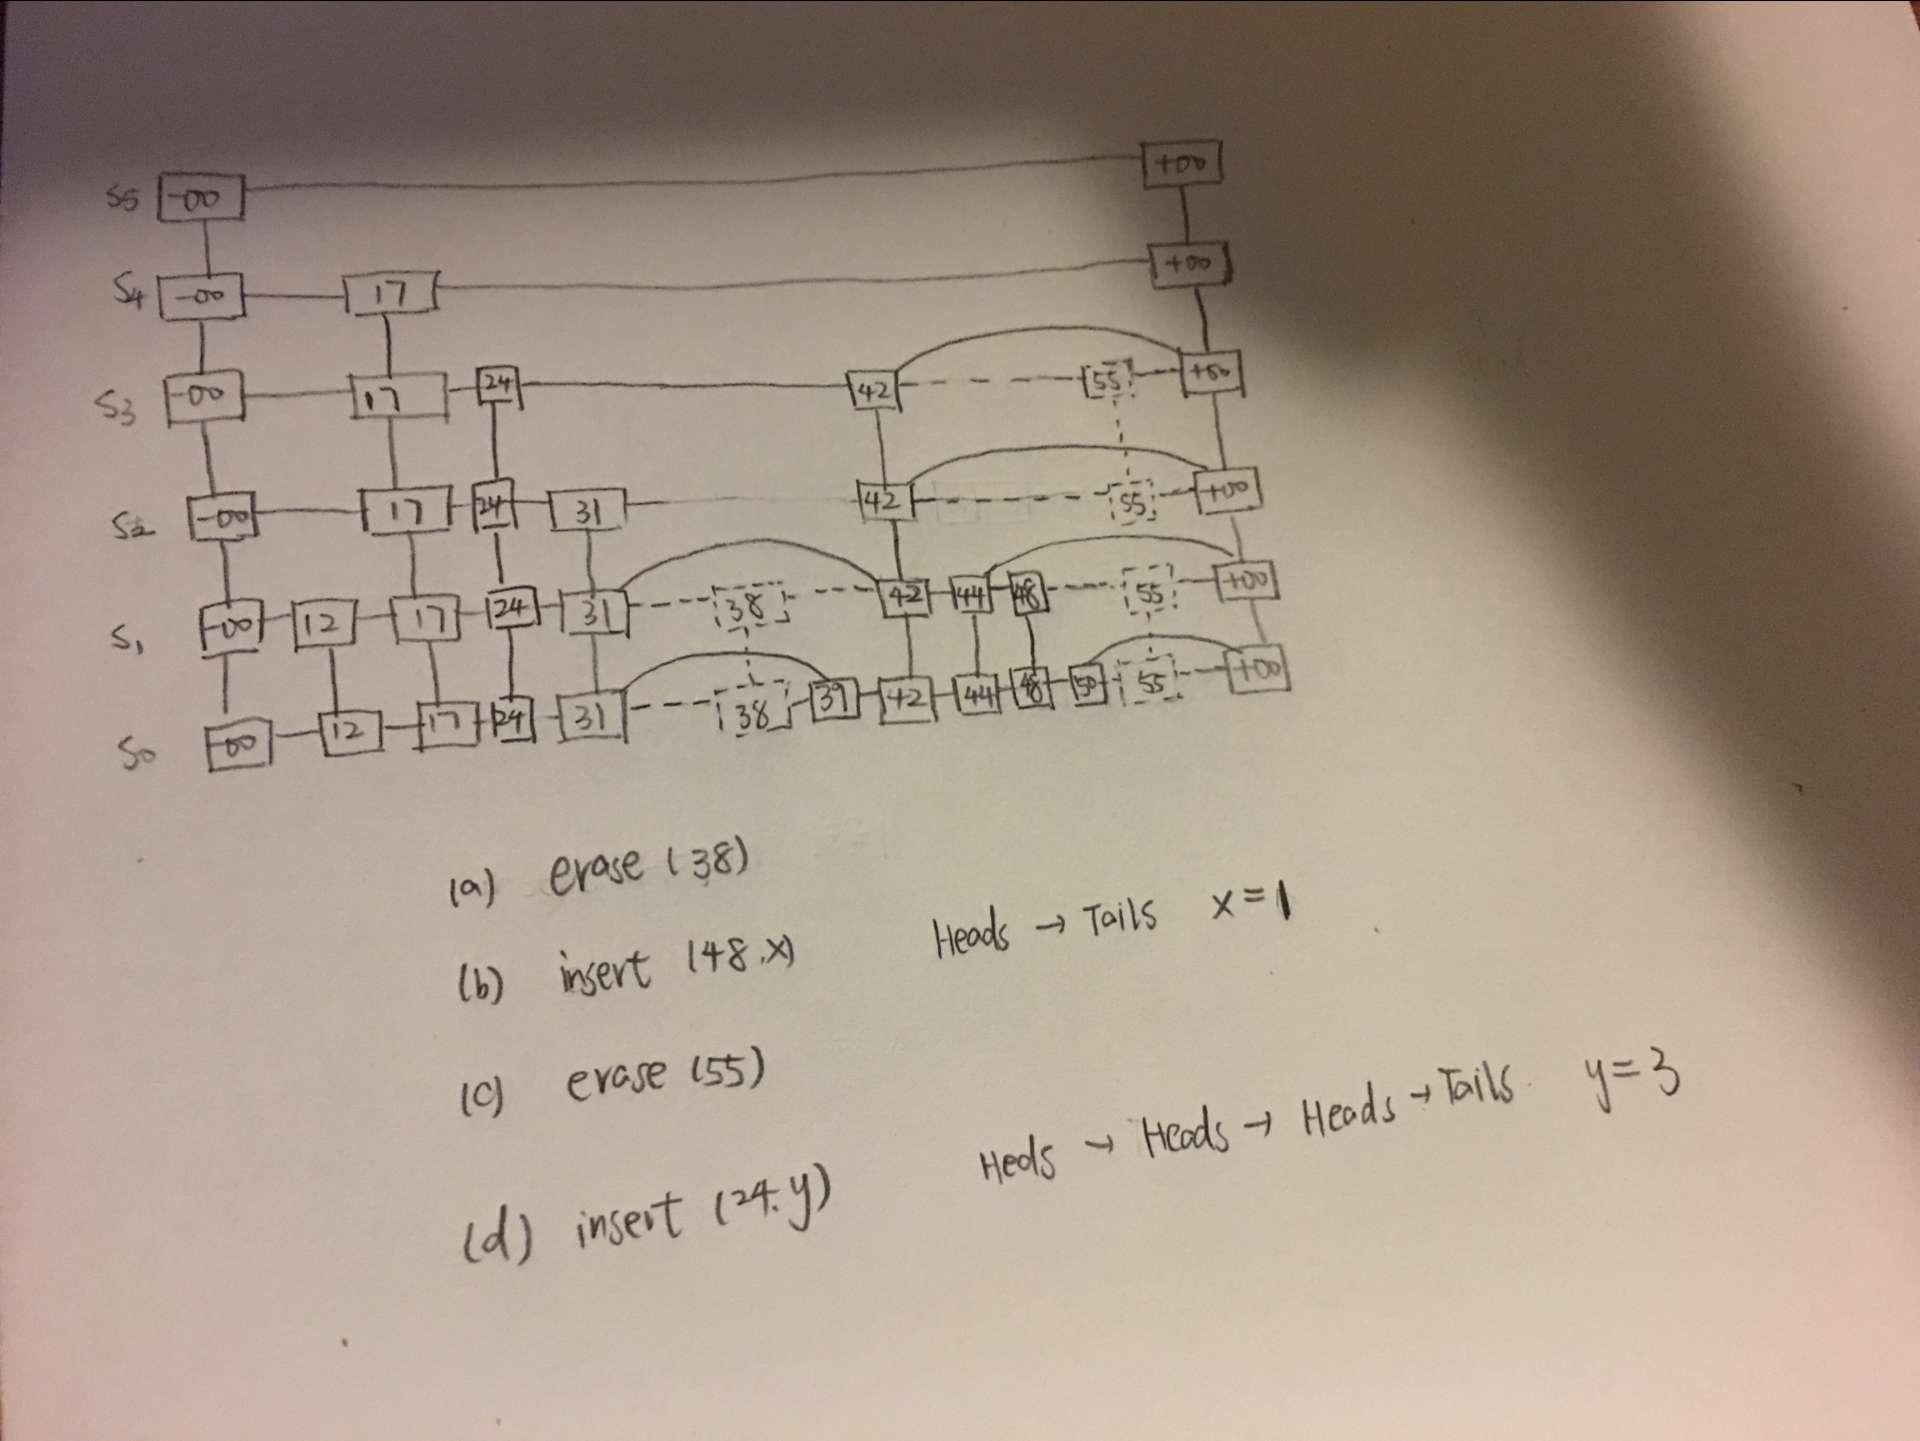 S5 -∞ +∞
S4 -∞ 17 +∞
S3 -∞ 17 24 42 55 +∞
S2 -∞ 17 24 31 42 55 +∞
S1 -∞ 12 17 24 31 38 42 44 48 55 +∞
S0 -∞ 12 17 24 31 38 39 42 44 48 50 55 +∞
(a) erase (38)
(b) insert (48.x) Heads → Tails x=1
(c) erase (55)
(d) insert (24.y) Heds → Heads → Heads → Tails y=3